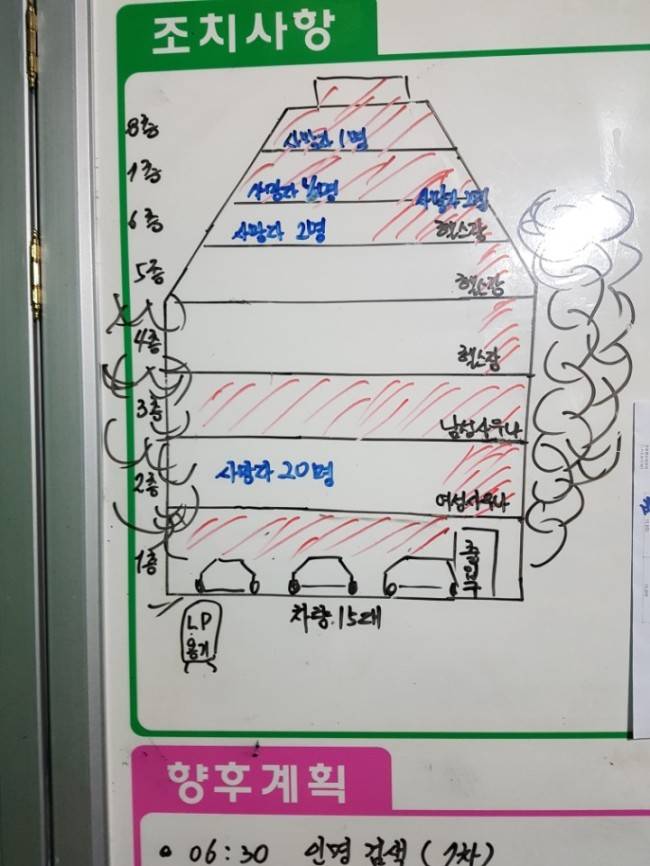 조치사항
8층
사망자 1명
7층
사망자 2명
6층
사망자 2명
헬스장
5층
헬스장
4층
헬스장
3층
남성사우나
2층
사망자 20명
여성사우나
1층
출입구
차량 15대
LP
용기
향후계획
06:30 인명 검색 (1차)